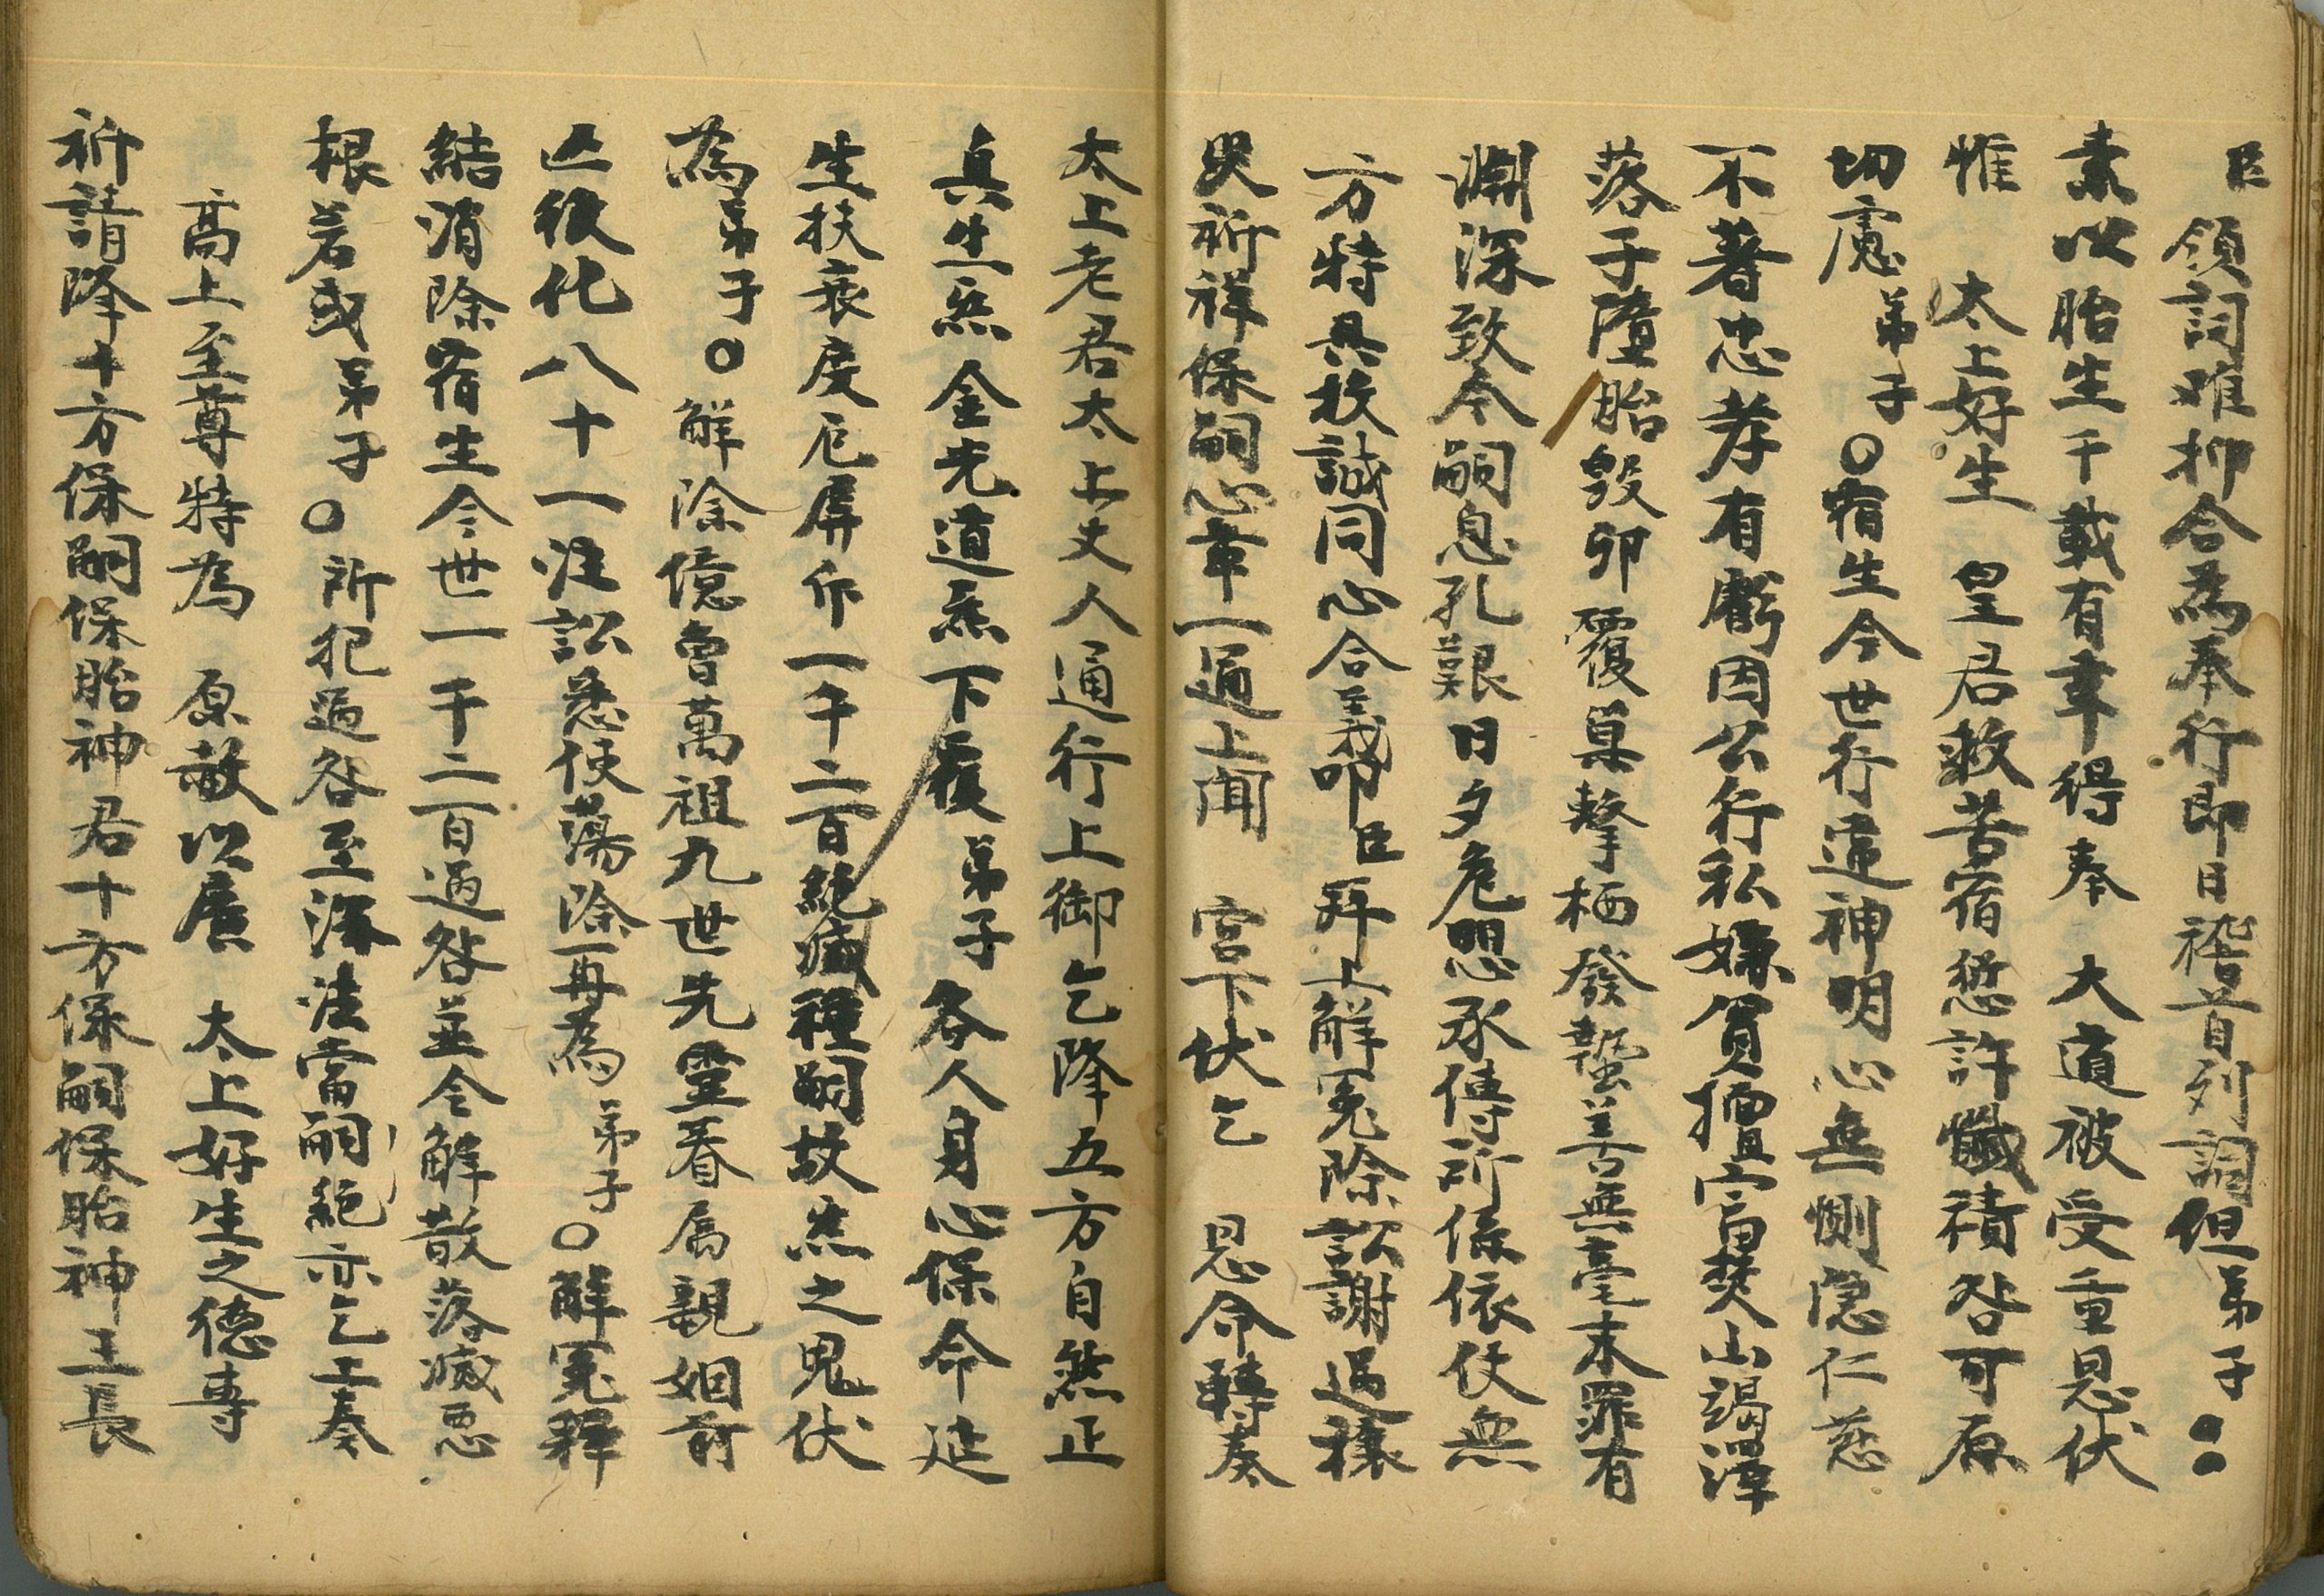 臣領詞难抑合為奉行即日稽首列詞但弟子〇〇
素以胎生千載有幸得奉 大道被受重恩伏
惟 太上好生 皇君救苦宿愆許懺積咎可原
切慮弟子〇宿生今世行違神明心無惻隐仁慈
不著忠孝有虧因公行私嫌貧擅富焚山竭潭
落子墮胎毀卵覆巢擊栖發蟄善無毫末罪有
淵深致今嗣息孔艱日夕危思承傳所係依仗無
方特具投誠同心合義叩臣拜上解冤除訟謝過禳
災祈祥保嗣心章一通上聞 宮下伏乞 恩命轉奏
太上老君太上丈人通行上御乞降五方自然正
真生炁金光道炁下覆弟子各人身心保命延
生扶衰度厄屏斥一千二百絕滅種嗣故炁之鬼伏
為弟子〇解除億曾萬祖九世先靈眷属親姻前
亡後化八十一注訟悉使蕩除一再為弟子〇解冤釋
結消除宿生今世一千二百過咎並令解散落滅惡
根若或弟子〇所犯過咎至深法當嗣絕亦乞上奏
高上至尊特為 原赦以廣 太上好生之德專
祈請降十方保嗣保胎神君十方保嗣保胎神王長